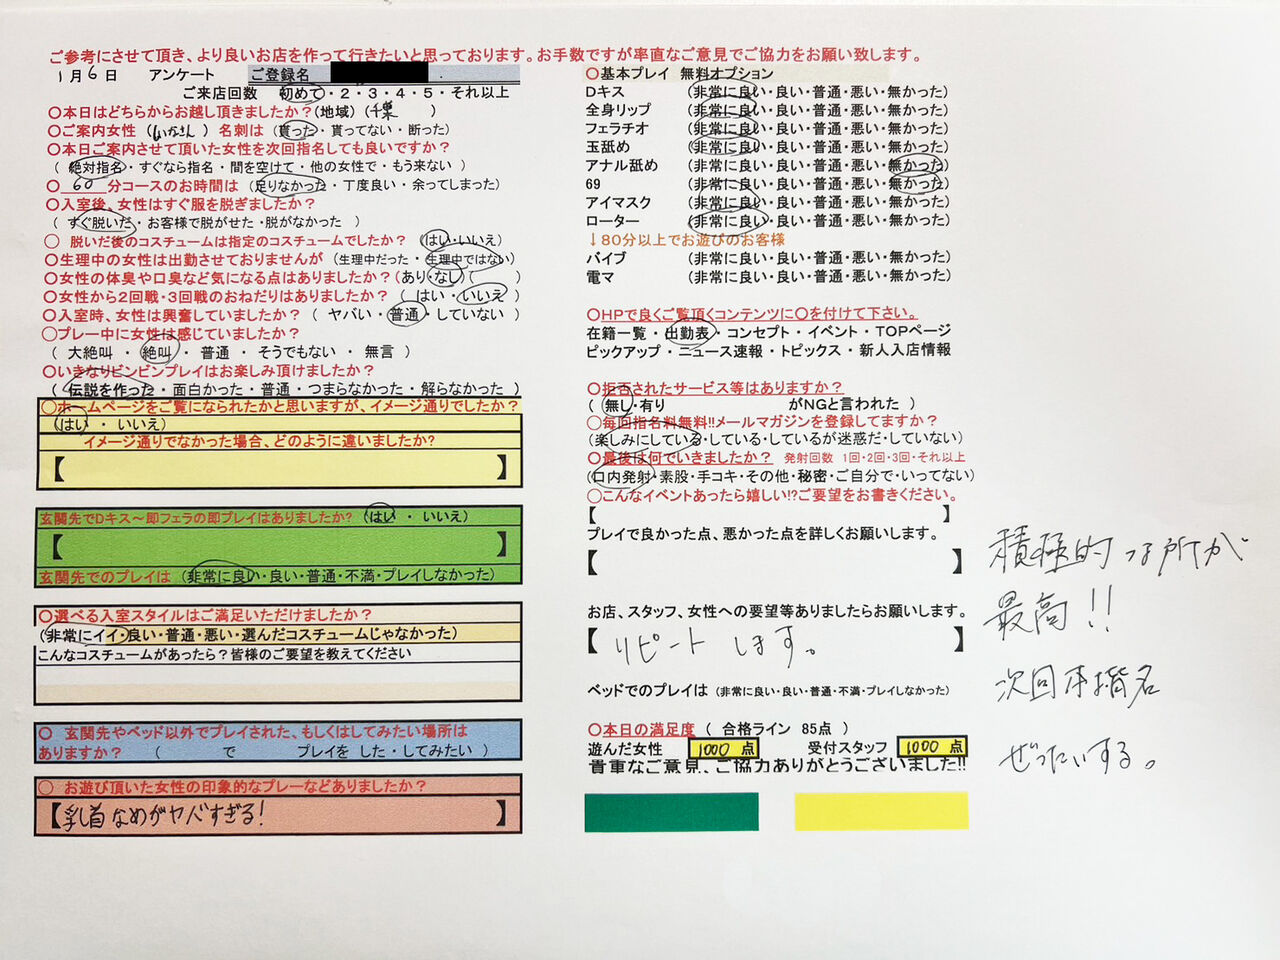 ご参考にさせて頂き、より良いお店を作って行きたいと思っております。お手数ですが率直なご意見でご協力をお願い致します。
1月6日 アンケート ご登録名
ご来店回数 初めて・2・3・4・5・それ以上
〇本日はどちらからお越し頂きましたか?(地域)(千葉 )
〇ご案内女性( )名刺は(貰った・貰ってない・断った)
〇本日ご案内させて頂いた女性を次回指名しても良いですか?
(絶対指名・すぐなら指名・間を空けて・他の女性で・もう来ない)
〇 60 分コースのお時間は(足りなかった・丁度良い・余ってしまった)
〇入室後、女性はすぐ服を脱ぎましたか?
(すぐ脱いだ・お客様で脱がせた・脱がなかった )
〇 脱いだ後のコスチュームは指定のコスチュームでしたか? (はい・いいえ)
〇生理中の女性は出勤させておりませんが(生理中だった・生理中ではない)
〇女性の体臭や口臭など気になる点はありましたか?(あり・なし)( )
〇女性から2回戦・3回戦のおねだりはありましたか? ( はい・いいえ )
〇入室時、女性は興奮していましたか? ( ヤバい・普通・していない )
〇プレー中に女性は感じていましたか?
( 大絶叫 ・ 絶叫 ・ 普通 ・ そうでもない ・ 無言 )
〇いきなりビンビンプレイはお楽しみ頂けましたか?
( 伝説を作った・面白かった・普通・つまらなかった・解らなかった )
〇ホームページをご覧になられたかと思いますが、イメージ通りでしたか?
(はい ・ いいえ)
イメージ通りでなかった場合、どのように違いましたか?
【 】
玄関先でDキス～即フェラの即プレイはありましたか? (はい ・ いいえ)
【 】
玄関先でのプレイは (非常に良い・良い・普通・不満・プレイしなかった)
〇選べる入室スタイルはご満足いただけましたか?
(非常にイイ・良い・普通・悪い・選んだコスチュームじゃなかった)
こんなコスチュームがあったら?皆様のご要望を教えてください
〇 玄関先やベッド以外でプレイされた、もしくはしてみたい場所は
ありますか? ( で プレイを した・してみたい )
〇 お遊び頂いた女性の印象的なプレーなどありましたか?
【乳首なめがヤバすぎる! 】
〇基本プレイ 無料オプション
Dキス (非常に良い・良い・普通・悪い・無かった)
全身リップ (非常に良い・良い・普通・悪い・無かった)
フェラチオ (非常に良い・良い・普通・悪い・無かった)
玉舐め (非常に良い・良い・普通・悪い・無かった)
アナル舐め (非常に良い・良い・普通・悪い・無かった)
69 (非常に良い・良い・普通・悪い・無かった)
アイマスク (非常に良い・良い・普通・悪い・無かった)
ローター (非常に良い・良い・普通・悪い・無かった)
↓80分以上でお遊びのお客様
バイブ (非常に良い・良い・普通・悪い・無かった)
電マ (非常に良い・良い・普通・悪い・無かった)
〇HPで良くご覧頂くコンテンツに〇を付けて下さい。
在籍一覧・出勤表・コンセプト・イベント・TOPページ
ピックアップ・ニュース速報・トピックス・新人入店情報
〇拒否されたサービス等はありますか?
( 無し・有り がNGと言われた )
〇毎回指名料無料!!メールマガジンを登録してますか?
(楽しみにしている・している・しているが迷惑だ・していない)
〇最後は何でいきましたか? 発射回数 1回・2回・3回・それ以上
(口内発射・素股・手コキ・その他・秘密・ご自分で・いってない)
〇こんなイベントあったら嬉しい!?ご要望をお書きください。
【 】
プレイで良かった点、悪かった点を詳しくお願いします。
【 】
お店、スタッフ、女性への要望等ありましたらお願いします。
【 リピート します。 】
ベッドでのプレイは (非常に良い・良い・普通・不満・プレイしなかった)
〇本日の満足度 ( 合格ライン 85点 )
遊んだ女性 1000 点 受付スタッフ 1000 点
貴重なご意見、ご協力ありがとうございました!!
積極的な所が
最高!!
次回本指名
ぜったいする。